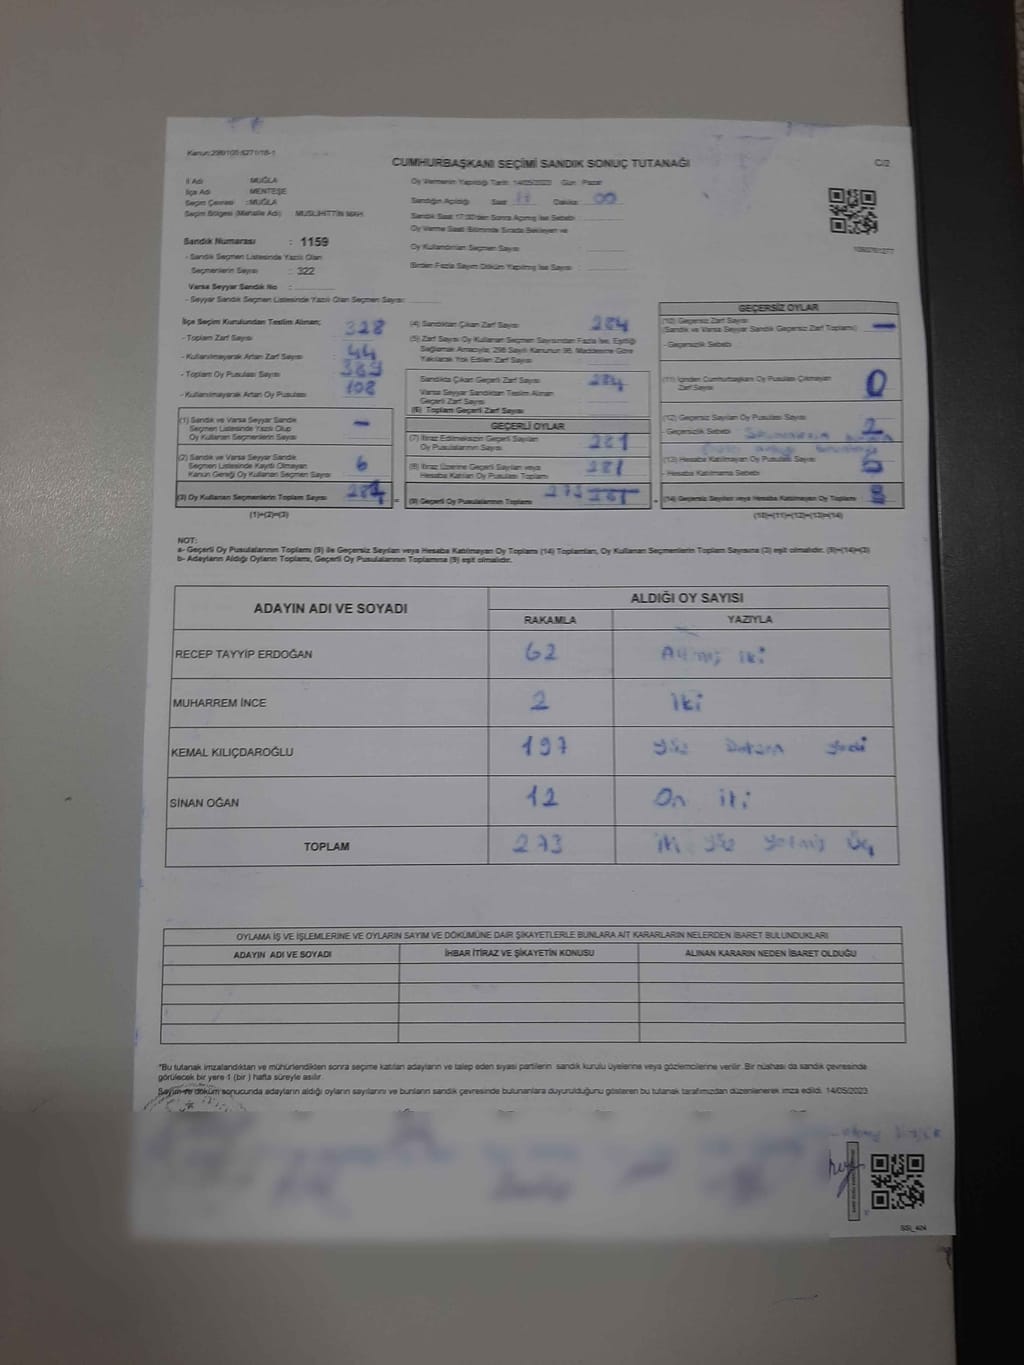 CUMHURBAŞKANI SEÇİMİ SANDIK SONUÇ TUTANAĞI
C/2
İl Adı : MUĞLA
İlçe Adı : MENTEŞE
Seçim Çevresi : MUĞLA
Seçim Bölgesi (Mahalle Adı) MUSLİHİTTİN MAH.
Sandık Numarası : 1159
- Sandık Seçmen Listesinde Yazılı Olan
Seçmenlerin Sayısı : 322
Varsa Seyyar Sandık No :
- Seyyar Sandık Seçmen Listesinde Yazılı Olan Seçmen Sayısı:
Oy Vermenin Yapıldığı Tarih: 14/05/2023 Gün: Pazar
Sandığın Açıldığı Saat Dakika 00
Sandık Saat 17:00'den Sonra Açılmış İse Sebebi
Oy Verme Saati Bitiminde Sırada Bekleyen ve
Oy Kullandırılan Seçmen Sayısı
Birden Fazla Sayım Döküm Yapılmış İse Sayısı :
İlçe Seçim Kurulundan Teslim Alınan;
- Toplam Zarf Sayısı 328
- Kullanılmayarak Artan Zarf Sayısı 44
- Toplam Oy Pusulası Sayısı 389
- Kullanılmayarak Artan Oy Pusulası 108
(1) Sandık ve Varsa Seyyar Sandık
Seçmen Listesinde Yazılı Olup
Oy Kullanan Seçmenlerin Sayısı –
(2) Sandık ve Varsa Seyyar Sandık
Seçmen Listesinde Kayıtlı Olmayan
Kanun Gereği Oy Kullanan Seçmen Sayısı 6
(3) Oy Kullanan Seçmenlerin Toplam Sayısı
(1)+(2)=(3)
(4) Sandıktan Çıkan Zarf Sayısı 284
(5) Zarf Sayısı Oy Kullanan Seçmen Sayısından Fazla İse, Eşitliği
Sağlamak Amacıyla; 298 Sayılı Kanunun 98. Maddesine Göre
Yakılarak Yok Edilen Zarf Sayısı
Sandıkta Çıkan Geçerli Zarf Sayısı 284
Varsa Seyyar Sandıktan Teslim Alınan
Geçerli Zarf Sayısı
(6) Toplam Geçerli Zarf Sayısı
GEÇERLİ OYLAR
(7) İtiraz Edilmeksizin Geçerli Sayılan
Oy Pusulalarının Sayısı 281
(8) İtiraz Üzerine Geçerli Sayılan veya
Hesaba Katılan Oy Pusulası Toplamı 281
(9) Geçerli Oy Pusulalarının Toplamı 273
GEÇERSİZ OYLAR
(10) Geçersiz Zarf Sayısı
(Sandık ve Varsa Seyyar Sandık Geçersiz Zarf Toplamı) –
- Geçersizlik Sebebi
(11) İçinden Cumhurbaşkanı Oy Pusulası Çıkmayan
Zarf Sayısı 0
(12) Geçersiz Sayılan Oy Pusulası Sayısı 2
- Geçersizlik Sebebi
(13) Hesaba Katılmayan Oy Pusulası Sayısı
- Hesaba Katılmama Sebebi
(14) Geçersiz Sayılan veya Hesaba Katılmayan Oy Toplamı 8
(10)+(11)+(12)+(13)=(14)
NOT:
a- Geçerli Oy Pusulalarının Toplamı (9) ile Geçersiz Sayılan veya Hesaba Katılmayan Oy Toplamı (14) Toplamları, Oy Kullanan Seçmenlerin Toplam Sayısına (3) eşit olmalıdır. (9)+(14)=(3)
b- Adayların Aldığı Oyların Toplamı, Geçerli Oy Pusulalarının Toplamına (9) eşit olmalıdır.
ADAYIN ADI VE SOYADI ALDIĞI OY SAYISI
RAKAMLA YAZIYLA
RECEP TAYYİP ERDOĞAN 62 Altmış iki
MUHARREM İNCE 2 İki
KEMAL KILIÇDAROĞLU 197 yüz Doksan yedi
SİNAN OĞAN 12 On iki
TOPLAM 273 iki yüz yetmiş üç
OYLAMA İŞ VE İŞLEMLERİNE VE OYLARIN SAYIM VE DÖKÜMÜNE DAİR ŞİKAYETLERLE BUNLARA AİT KARARLARIN NELERDEN İBARET BULUNDUKLARI
ADAYIN ADI VE SOYADI İHBAR İTİRAZ VE ŞİKAYETİN KONUSU ALINAN KARARIN NEDEN İBARET OLDUĞU
*Bu tutanak imzalandıktan ve mühürlendikten sonra seçime katılan adayların ve talep eden siyasi partilerin sandık kurulu üyelerine veya gözlemcilerine verilir. Bir nüshası da sandık çevresinde
görülecek bir yere 1 (bir ) hafta süreyle asılır.
Sayım ve döküm sonucunda adayların aldığı oyların sayılarını ve bunların sandık çevresinde bulunanlara duyurulduğunu gösteren bu tutanak tarafımızdan düzenlenerek imza edildi. 14/05/2023